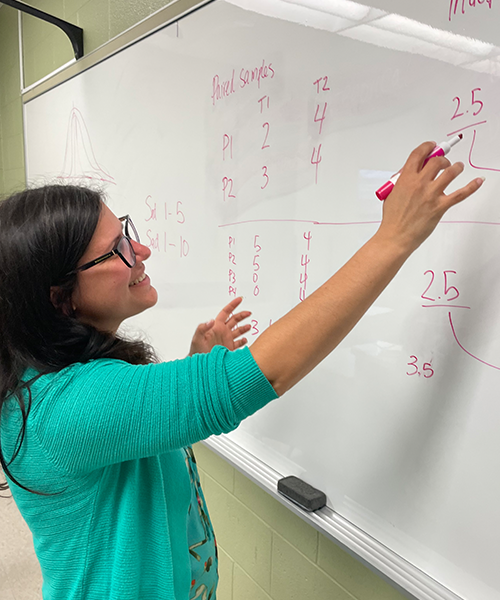 Paired samples
T1 T2
P1 2 4
P2 3 4
Sat 1-5
Sat 1-10
P1 5 4
P2 5 4
P3 0 4
P4 0 4
3
2.5
2.5
3.5